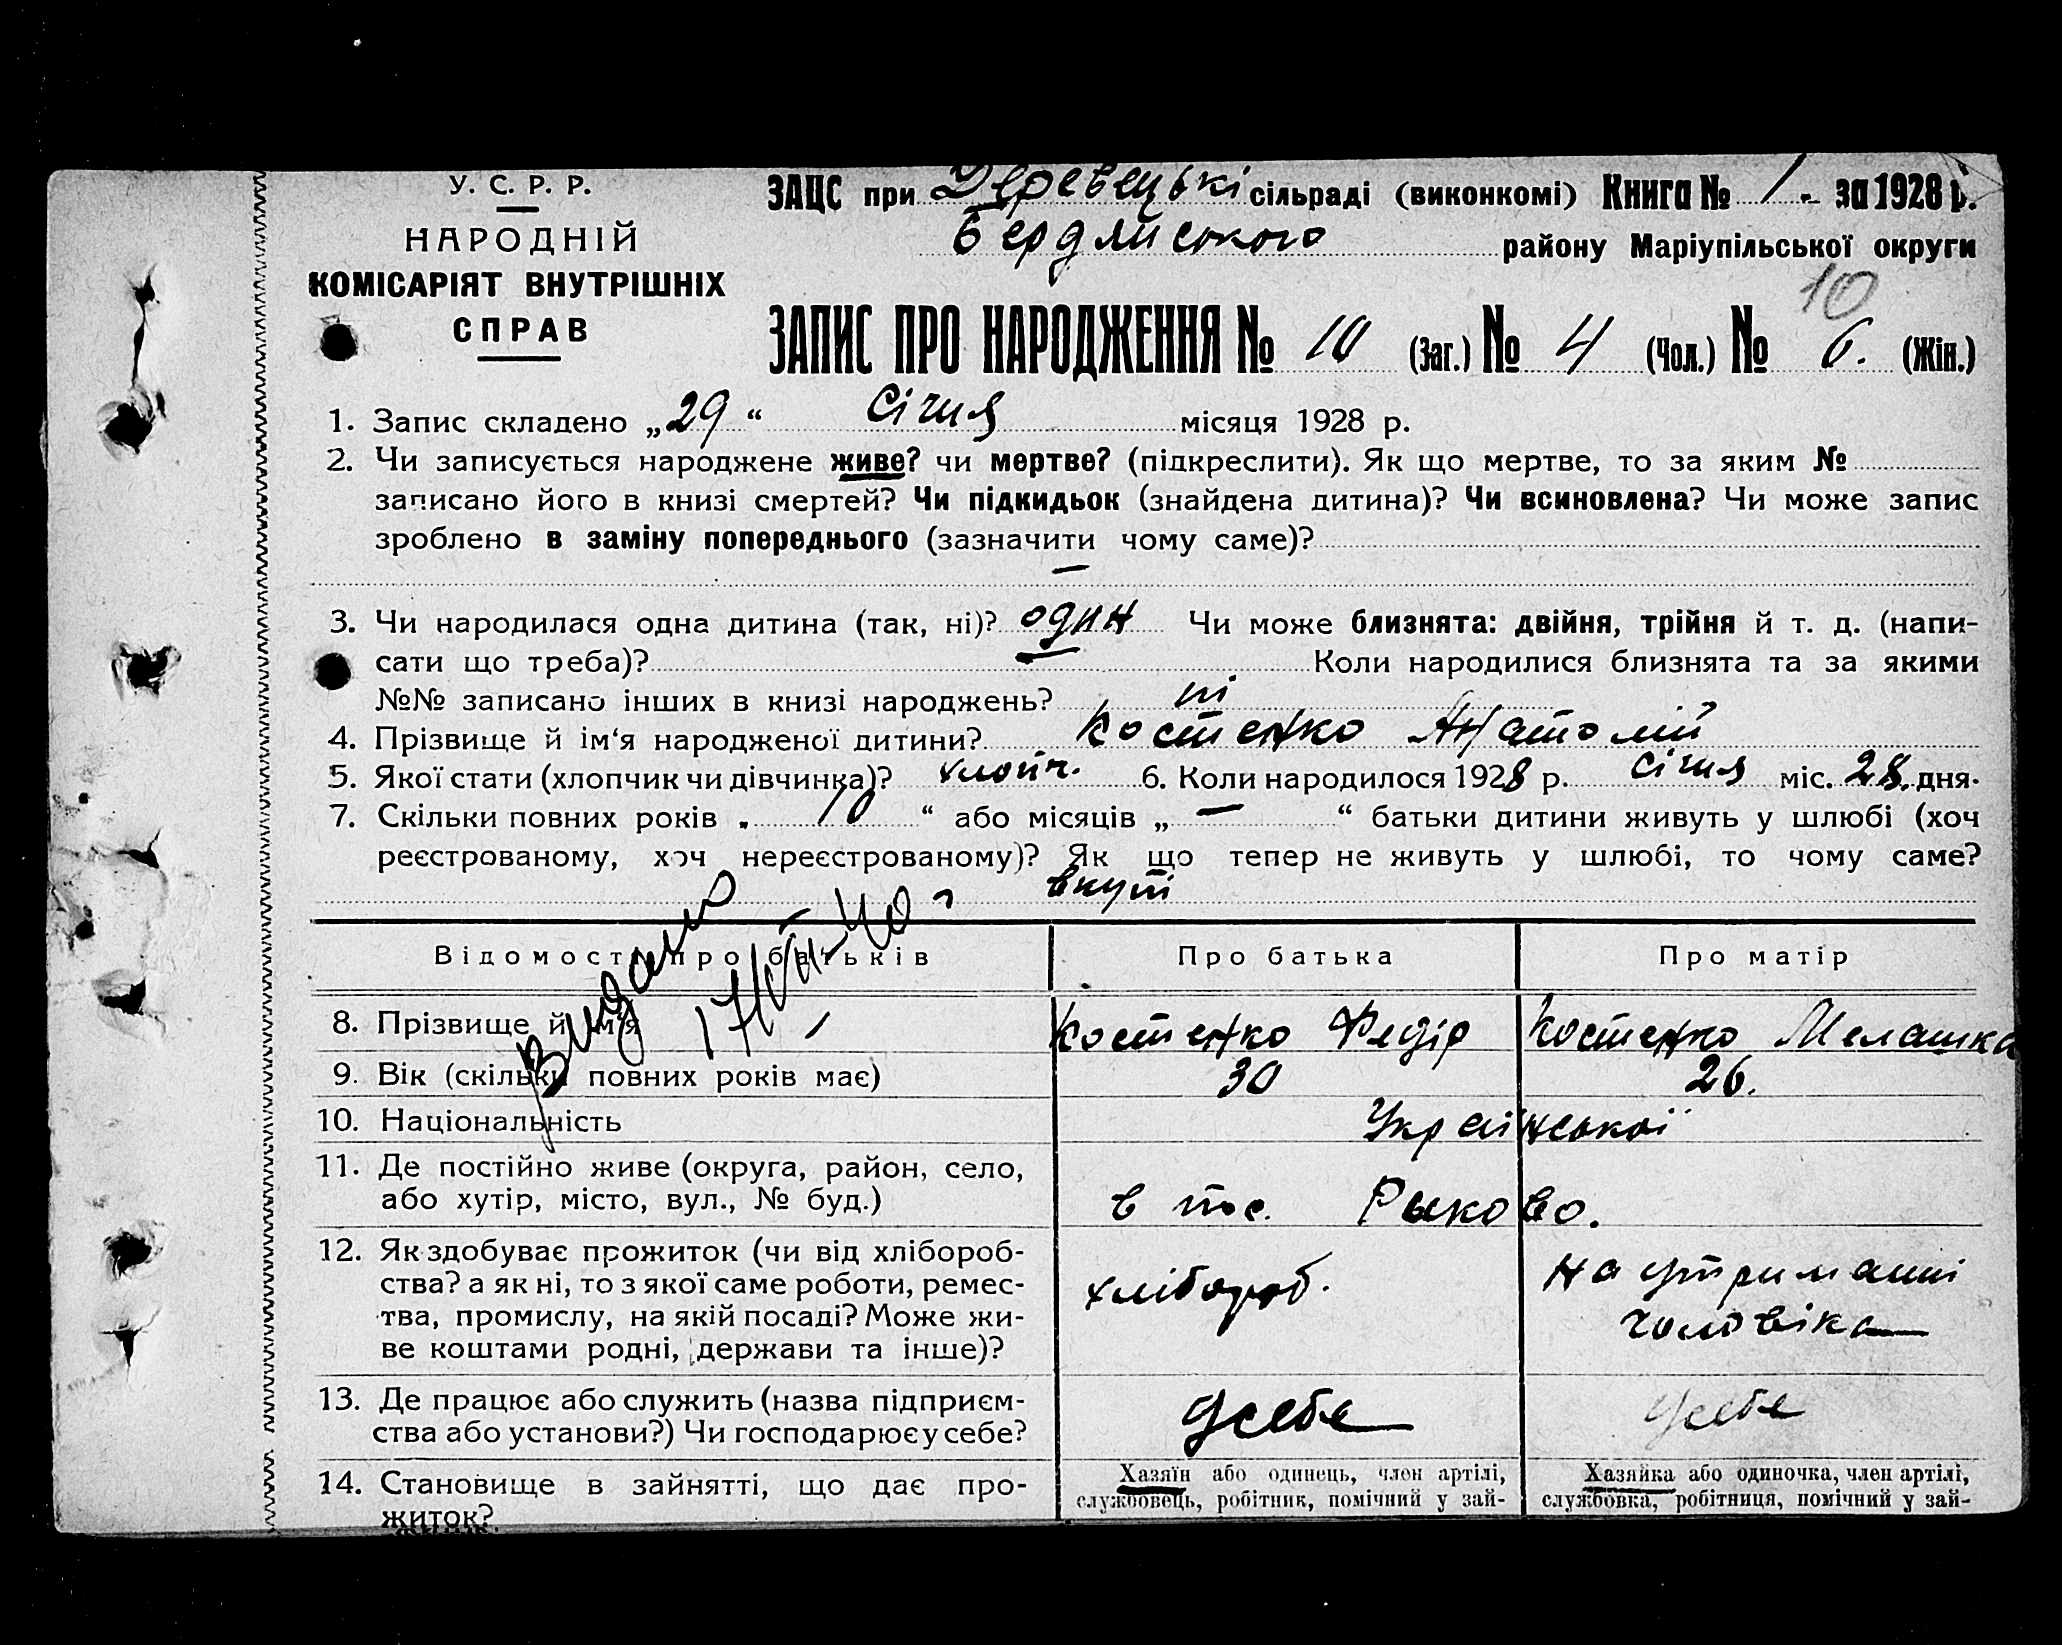 У. С. Р. Р.
НАРОДНІЙ
КОМІСАРІЯТ ВНУТРІШНІХ
СПРАВ
ЗАЦС при Деревецькі сільраді (виконкомі) Книга № 1 - за 1928 р.
Бердянського району Маріупільської округи
10
ЗАПИС ПРО НАРОДЖЕННЯ № 10 (Заг.) № 4 (Чол.) № 6. (Жін.)
1. Запис складено „29“ Січня місяця 1928 р.
2. Чи записується народжене живе? чи мертве? (підкреслити). Як що мертве, то за яким №
записано його в книзі смертей? Чи підкидьок (знайдена дитина)? Чи всиновлена? Чи може запис
зроблено в заміну попереднього (зазначити чому саме)?
—
3. Чи народилася одна дитина (так, ні)? один Чи може близнята: двійня, трійня й т. д. (напи-
сати що треба)? — Коли народилися близнята та за якими
№№ записано інших в книзі народжень? ні
4. Прізвище й ім‘я народженої дитини? Костенко Анатолій
5. Якої стати (хлопчик чи дівчинка)? хлопч. 6. Коли народилося 1928 р. Січня міс. 28. дня.
7. Скільки повних років „ 10 “ або місяців „ — “ батьки дитини живуть у шлюбі (хоч
реєстрованому, хоч нереєстрованому)? Як що тепер не живуть у шлюбі, то чому саме?
вкупі
Відомості про батьків Про батька Про матір
8. Прізвище й ім‘я Костенко Федір Костенко Мелашка
9. Вік (скільки повних років має) 30 26.
10. Національність Української
11. Де постійно живе (округа, район, село,
або хутір, місто, вул., № буд.) в пос. Рыково.
12. Як здобуває прожиток (чи від хлібороб-
ства? а як ні, то з якої саме роботи, ремес-
тва, промислу, на якій посаді? Може жи-
ве коштами родні, держави та інше)?
хлібороб. на утриманні
чоловіка
13. Де працює або служить (назва підприєм-
ства або установи?) Чи господарює у себе?
У себе У себе
14. Становище в зайнятті, що дає про-
житок?
Хазяїн або одинець, член артілі,
службовець, робітник, помічний у зай-
Хазяйка або одиночка, член артілі,
службовка, робітниця, помічний у зай-
Видано